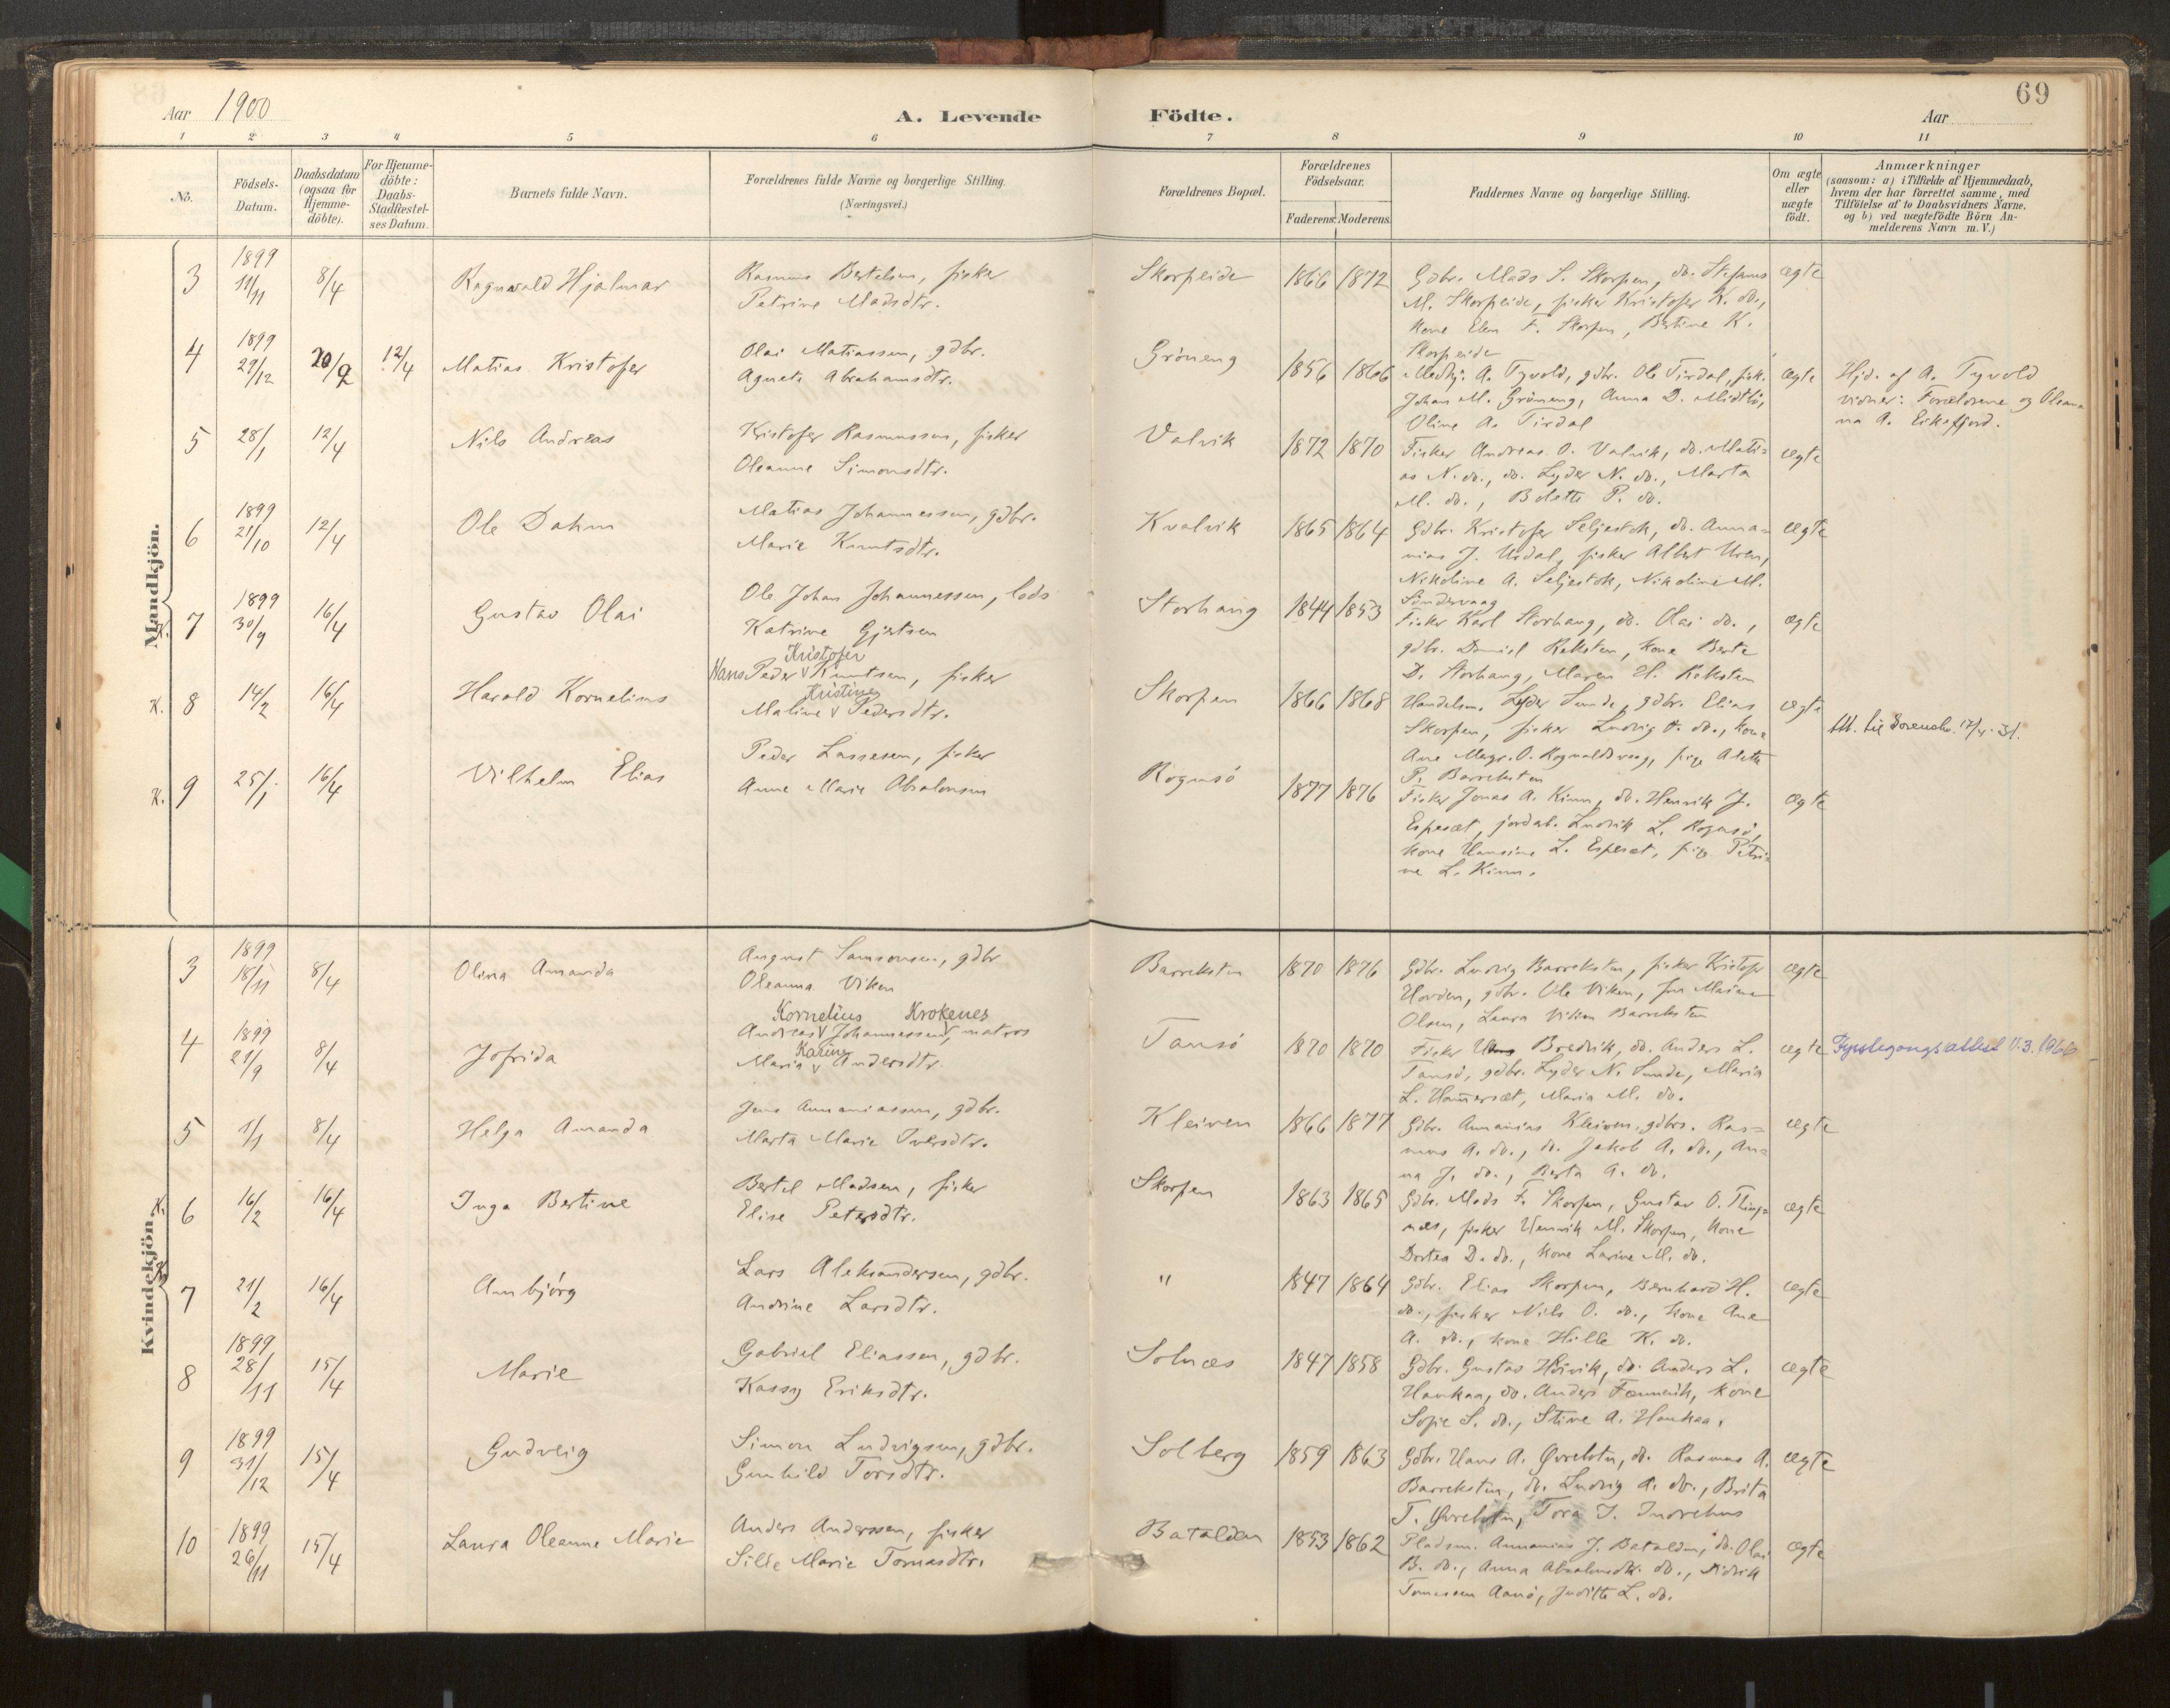 69
Aar 1900
A. Levende Födte.
Aar
1 2 3 4 5 6 7 8 9 10 11
No.
Födsels-Datum.
Daabsdatum (ogsaa for Hjemme-döbte).
For Hjemme-döbte: Daabs-Stadfæstel-ses Datum.
Barnets fulde Navn.
Forældrenes fulde Navne og borgerlige Stilling.
(Næringsvei.)
Forældrenes Bopæl.
Forældrenes Födselsaar.
Faderens. Moderens.
Faddernes Navne og borgerlige Stilling.
Om ægte eller uægte födt.
Anmærkninger
(saasom: a) i Tilfælde af Hjemmedaab,
hvem der har forrettet samme, med
Tilföielse af to Daabsvidners Navne.
og b) ved uægtefödte Börn An-
melderens Navn m. V.)
Mandkjön.
3 1899 11/11 8/4 Ragnvald Hjalmar
Rasmus Bertelsen, fisker
Petrine Madsdtr.
Skorpeide 1866 1872
Gdbr. Mads S. Skorpen, do. Stefanus
M. Skorpeide, fisker Kristofer K. do.,
kone Elen F. Skorpen, Bertine K.
Skorpeide
ægte
4 1899 29/12 20/2 12/4 Matias Kristofer
Olai Matiassen, gdbr.
Agnete Abrahamsdtr.
Gröneng 1856 1866
Medhj. A. Tyvold, gdbr. Ole Tirdal, fisk.
Johan M. Gröneng, Anna D. Midtbö,
Oline A. Tirdal
ægte
Hjd. af A. Tyvold
vidner: Forældrene og Olean-
na A. Eiksfjord.
5 28/1 12/4 Nils Andreas
Kristofer Rasmussen, fisker
Oleanne Simonsdtr.
Valvik 1872 1870
Fisker Andreas O. Valvik, do. Mati=
as N. do., do. Lyder N. do., Marta
M. do., Bolette P. do.
ægte
6 1899 21/10 12/4 Ole Dahm
Matias Johannessen, gdbr.
Marie Knutsdtr.
Kvalvik 1865 1864
Gdbr. Kristofer Seljestok, do. Anna=
nias J. Urdal, fisker Albert Uren,
Nikoline A. Seljestok, Nikoline M.
Söndervaag
ægte
K. 7 1899 30/9 16/4 Gustav Olai
Ole Johan Johannessen, lods
Katrine Gjertsen
Storhaug 1844 1853
Fisker Karl Storhaug, do. Olai do.,
gdbr. Daniel Reksten, kone Berte
D. Storhaug, Maren H. Reksten
ægte
K. 8 14/2 16/4 Harald Kornelius
Kristofer
Hans Peder Knutsen, fisker
Kristine
Maline Pedersdtr.
Skorpen 1866 1868
Handelsm. Lyder Sunde, gdbr. Elias
Skorpen, fisker Ludvig O. do., kone
Ane Magr. O. Rognaldsvaag, pige Alette
P. Barreksten
ægte
Att. til 17/4-31.
K. 9 25/1 16/4 Vilhelm Elias
Peder Lassesen, fisker
Anne Marie Absalonsen
Rognsö 1877 1876
Fisker Jonas A. Kinn, do. Henrik J.
Espeset, jordab. Ludvik L. Rognsö,
kone Hansine L. Espeset, pige Petri=
ne L. Kinn.
ægte
Kvindekjön.
3 1899 18/11 8/4 Olina Amanda
August Samsonsen, gdbr
Oleanna Viken
Barreksten 1870 1876
Gdbr. Ludvig Barreksten, fisker Kristofer
Hovden, gdbr. Ole Viken,
Olsen, Laura Viken Barreksten
ægte
4 1899 21/9 8/4 Jofrida
Kornelius Krokenes
Andreas Johannessen, matros
Karine
Maria Andersdtr.
Tansö 1870 1870
Fisker Bredvik, do. Anders L.
Tansö, gdbr. Lyder N. Sunde, Maria
L. Hammerset, Maria M. do.
ægte
Fyrstegongsattest 11.3.1966
5 1/1 8/4 Helga Amanda
Jens Annaniassen, gdbr.
Marta Marie Iversdtr.
Kleiven 1866 1877
Gdbr. Annanias Kleiven, gdbrs. Ras=
mus A. do., do. Jakob A. do., An=
na J. do., Berta A. do.
ægte
K. 6 16/2 16/4 Inga Bertine
Bertel Madsen, fisker
Elise Petersdtr.
Skorpen 1863 1865
Gdbr. Mads F. Skorpen, Gustav O. Thing=
næs, fisker Henrik M. Skorpen, kone
Dortea D. do., kone Larine M. do.
ægte
K. 7 21/2 16/4 Annbjörg
Lars Aleksandersen, gdbr.
Andrine Larsdtr.
" 1847 1864
Gdbr. Elias Skorpen, Bernhard H.
do., fisker Nils O. do., kone Ane
A. do., kone Hille K. do.
ægte
8 1899 28/11 15/4 Marie
Gabriel Eliassen, gdbr.
Kassy Eriksdtr.
Solnæs 1847 1858
Gdbr. Gustav Höivik, do. Anders L.
Haukaa, do. Anders Fannevik, kone
Sofie S. do., Stine A. Haukaa.
ægte
9 1899 31/12 15/4 Gudveig
Simon Ludvigsen, gdbr.
Gunhild Torsdtr.
Solberg 1859 1863
Gdbr. Hans A. Övreboten, do. Rasmus A.
Barreksten, do. Ludvig A. do., Brita
T. Övreboten, Tora J. Indrehus
ægte
10 1899 26/11 15/4 Laura Oleanne Marie
Anders Anderssen, fisker
Sille Marie Tomasdtr.
Batalden 1853 1862
Pladsm. Annanias J. Batalden, do. Olai
B. do., Anna Absalonsdtr. do., Didrik
Tomessen Aanö, Judithe L. do.
ægte